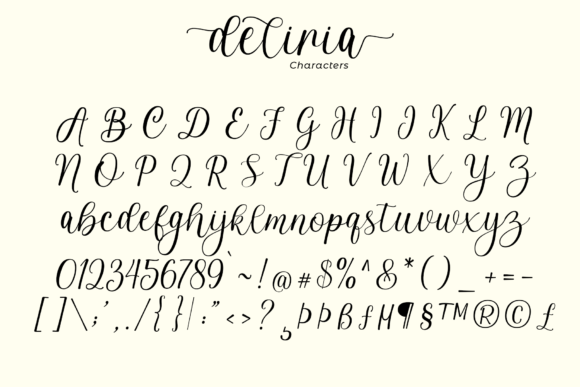 deliria
Characters
A B C D E F G H I J K L M
N O P Q R S T U V W X Y Z
abcdefghijklmnopqrstuvwxyz
0123456789`~!@#$%^&*()_+=-
[]\;',./{}|:"<>?
¶§™®©£